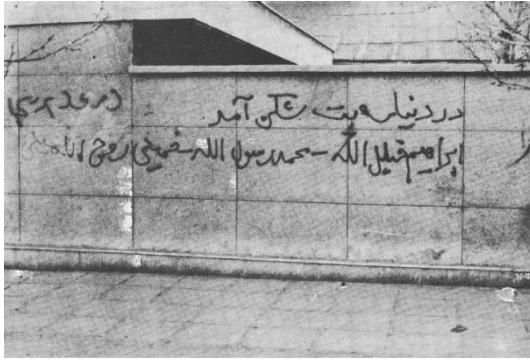 در دنیا سه بت شکن آمد
ابراهیم خلیل الله - محمد رسول الله - خمینی روح الله